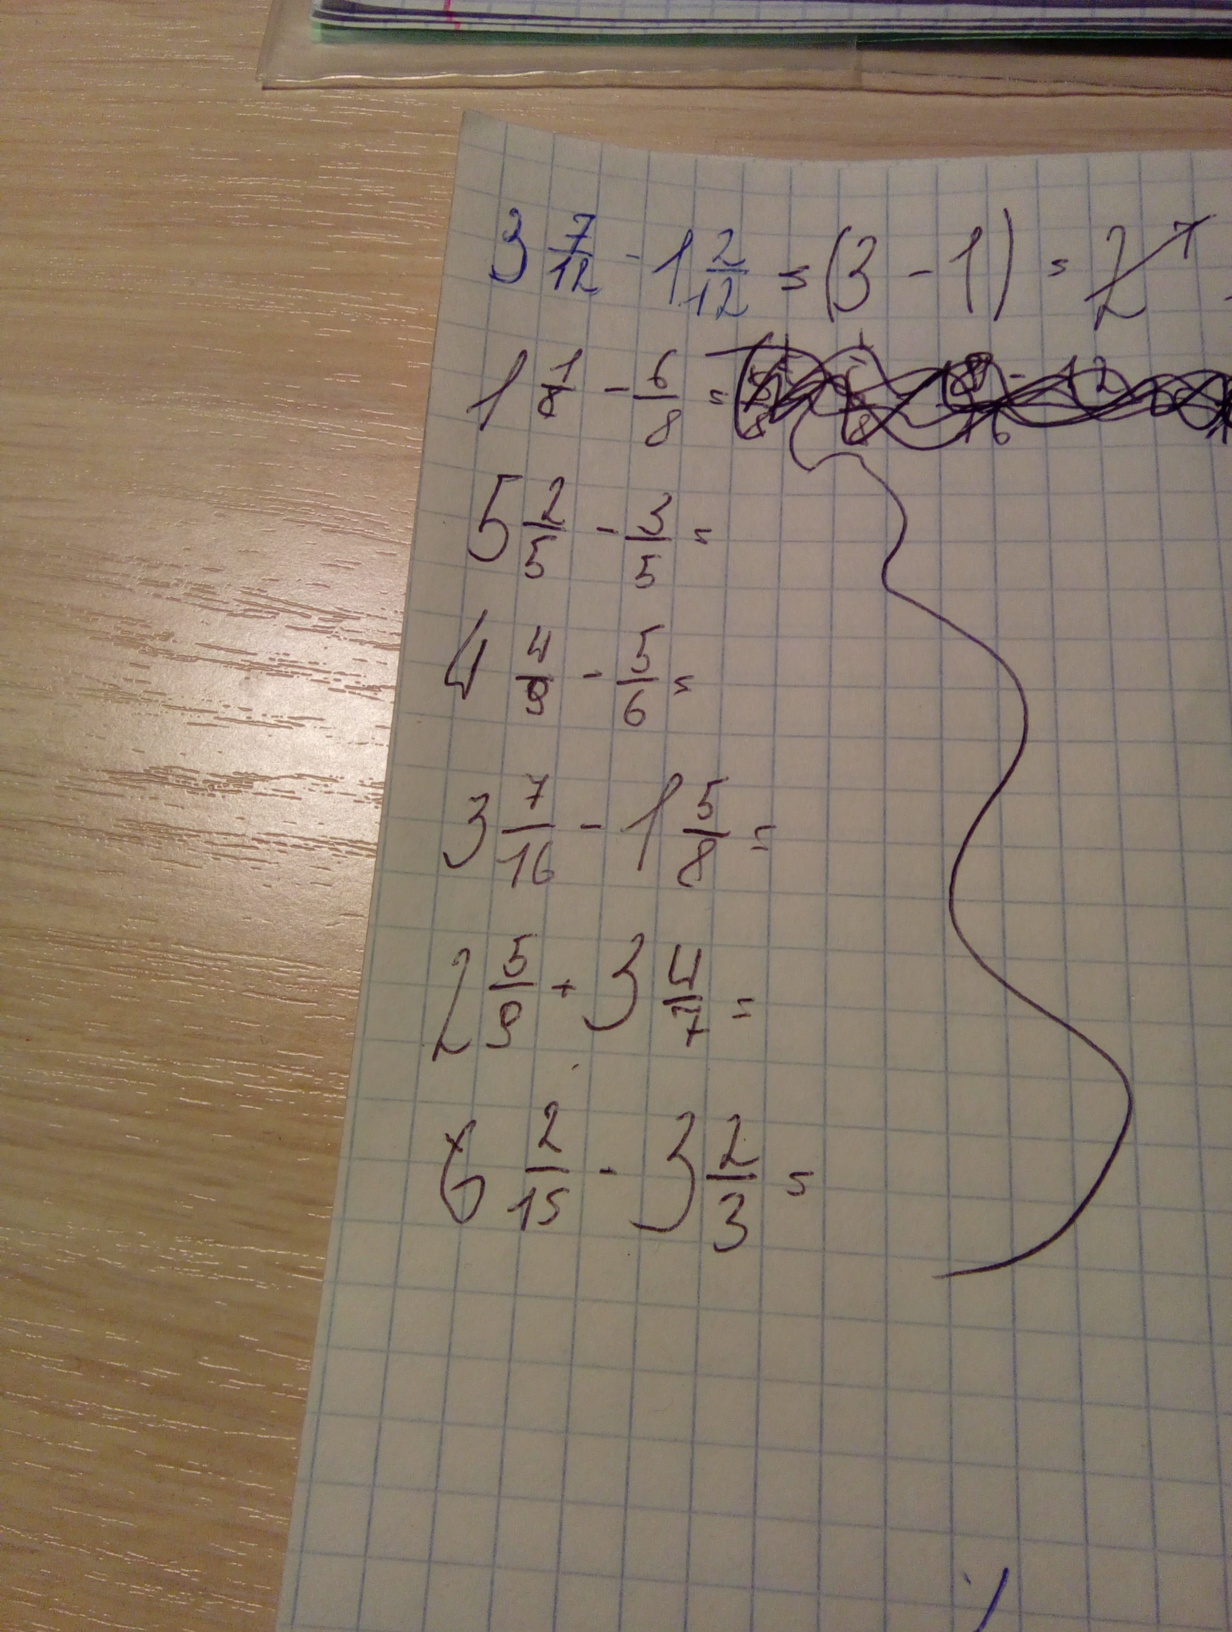 3 7/12 - 1 2/12 = (3 - 1) = 2
1 1/8 - 6/8 =
5 2/5 - 3/5 =
4 4/9 - 5/6 =
3 7/16 - 1 5/8 =
2 5/9 + 3 4/7 =
6 2/15 - 3 2/3 =